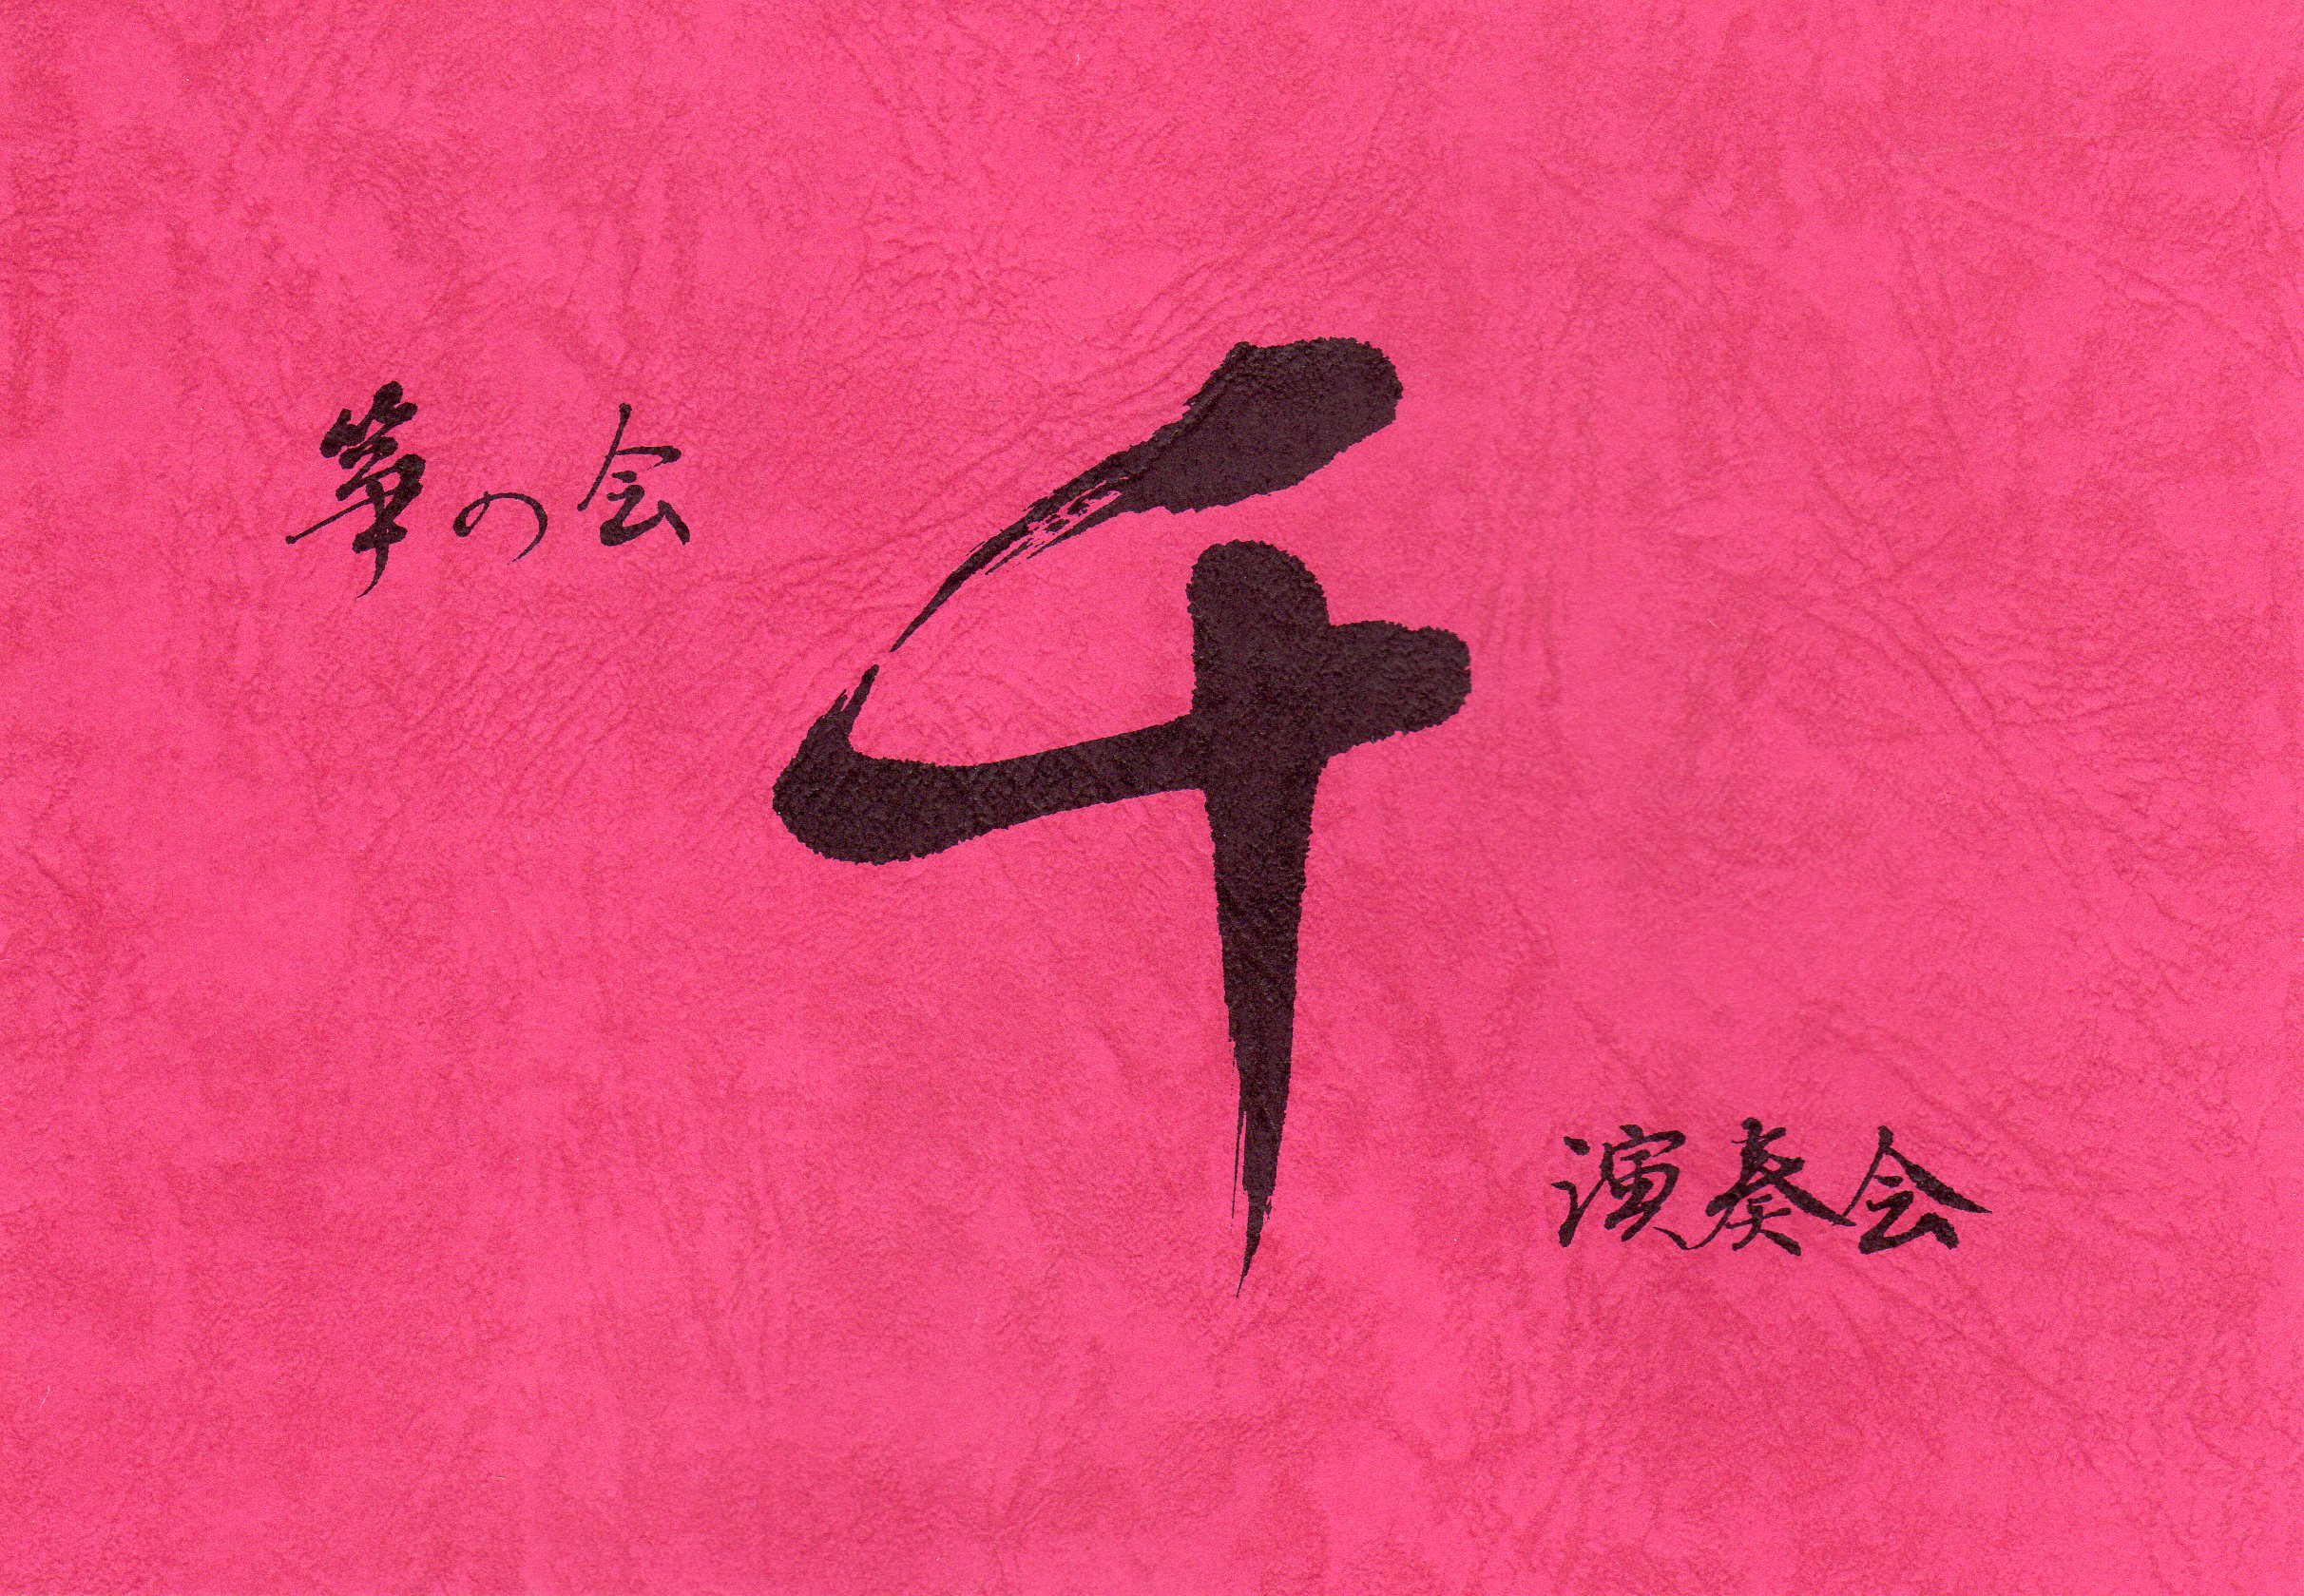 箏の会
千
演奏会